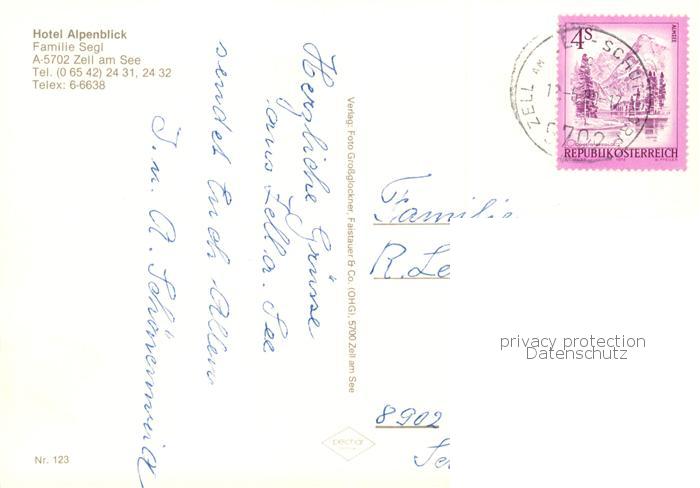 Hotel Alpenblick
Familie Segl
A-5702 Zell am See
Tel. (0 65 42) 24 31, 24 32
Telex: 6-6638
Herzliche Grüsse
aus Zell a. See
sendet Euch Allen
Verlag: Foto Großglockner, Faistauer & Co. (OHG), 5700 Zell am See
Nr. 123
pechar
4S
ALMSEE
REPUBLIK ÖSTERREICH
ZELL AM
5700
Familie
R. Le
8902
privacy protection
Datenschutz